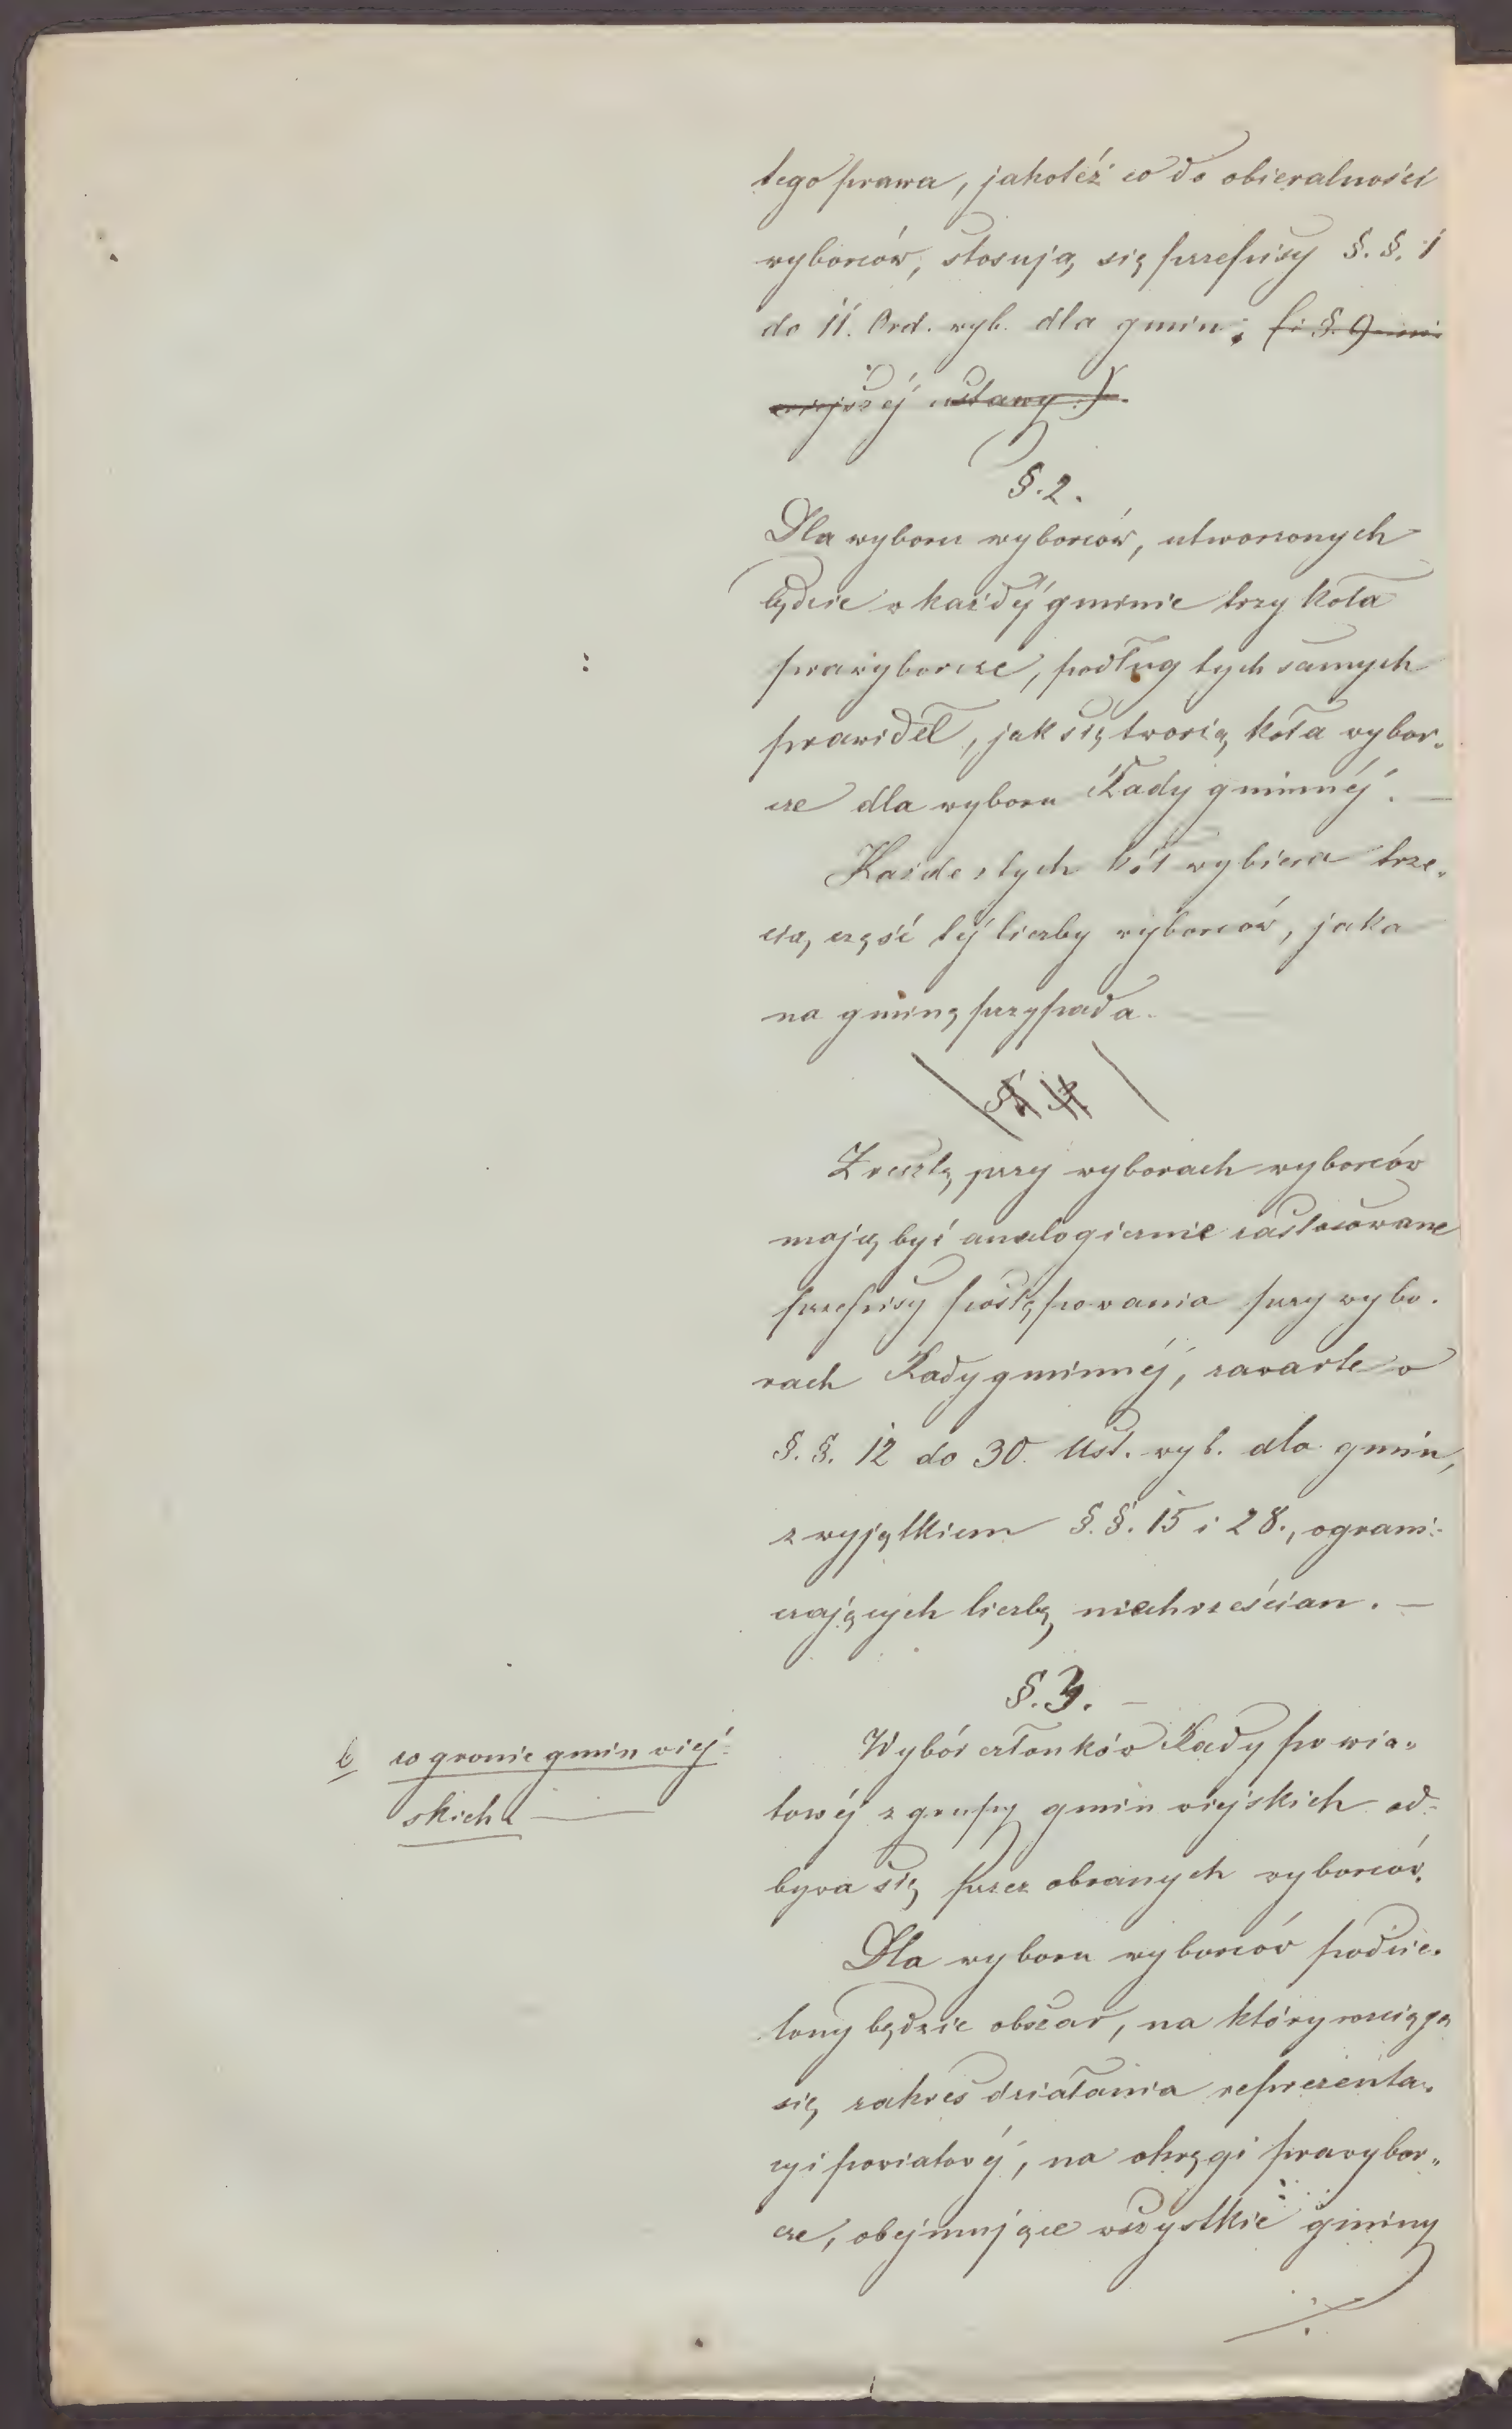 tego prawa, jakotéż co do obieralności
wyborców, stosują się przepisy §. §. 1
do 11. Ord. wyb. dla gmin; (i §. 9 ni
niejszéj ustawy.).
§. 2.
Dla wyboru wyborców, utworzonych
będzie w każdéj gminie trzy koła
prawyborcze, podług tych samych
prawideł, jak się tworzą koła wybor„
cze dla wyboru Rady gminnéj. —
Każde z tych kół wybiera trze„
cią część téj liczby wyborców, jaka
na gminę przypada.
Zresztą przy wyborach wyborców
mają być analogicznie zastosowane
przepisy postępowania przy wybo.
rach Rady gminnéj, zawarte w
§. §. 12 do 30. Ust. wyb. dla gmin,
z wyjątkiem §. §. 15 i 28., ograni-
czających liczbę niechrześcian. —
§. 3. —
b, w gronie gmin wiej-
skich. —
Wybór członków Rady powia„
towéj z grupy gmin wiejskich od-
bywa się przez obranych wyborców.
Dla wyboru wyborców podzie.
lony będzie obszar, na który rozciąga
się zakres działania reprezenta„
cyi powiatowéj, na okręgi prawybor„
cze, obejmujące wszystkie gminy
./.